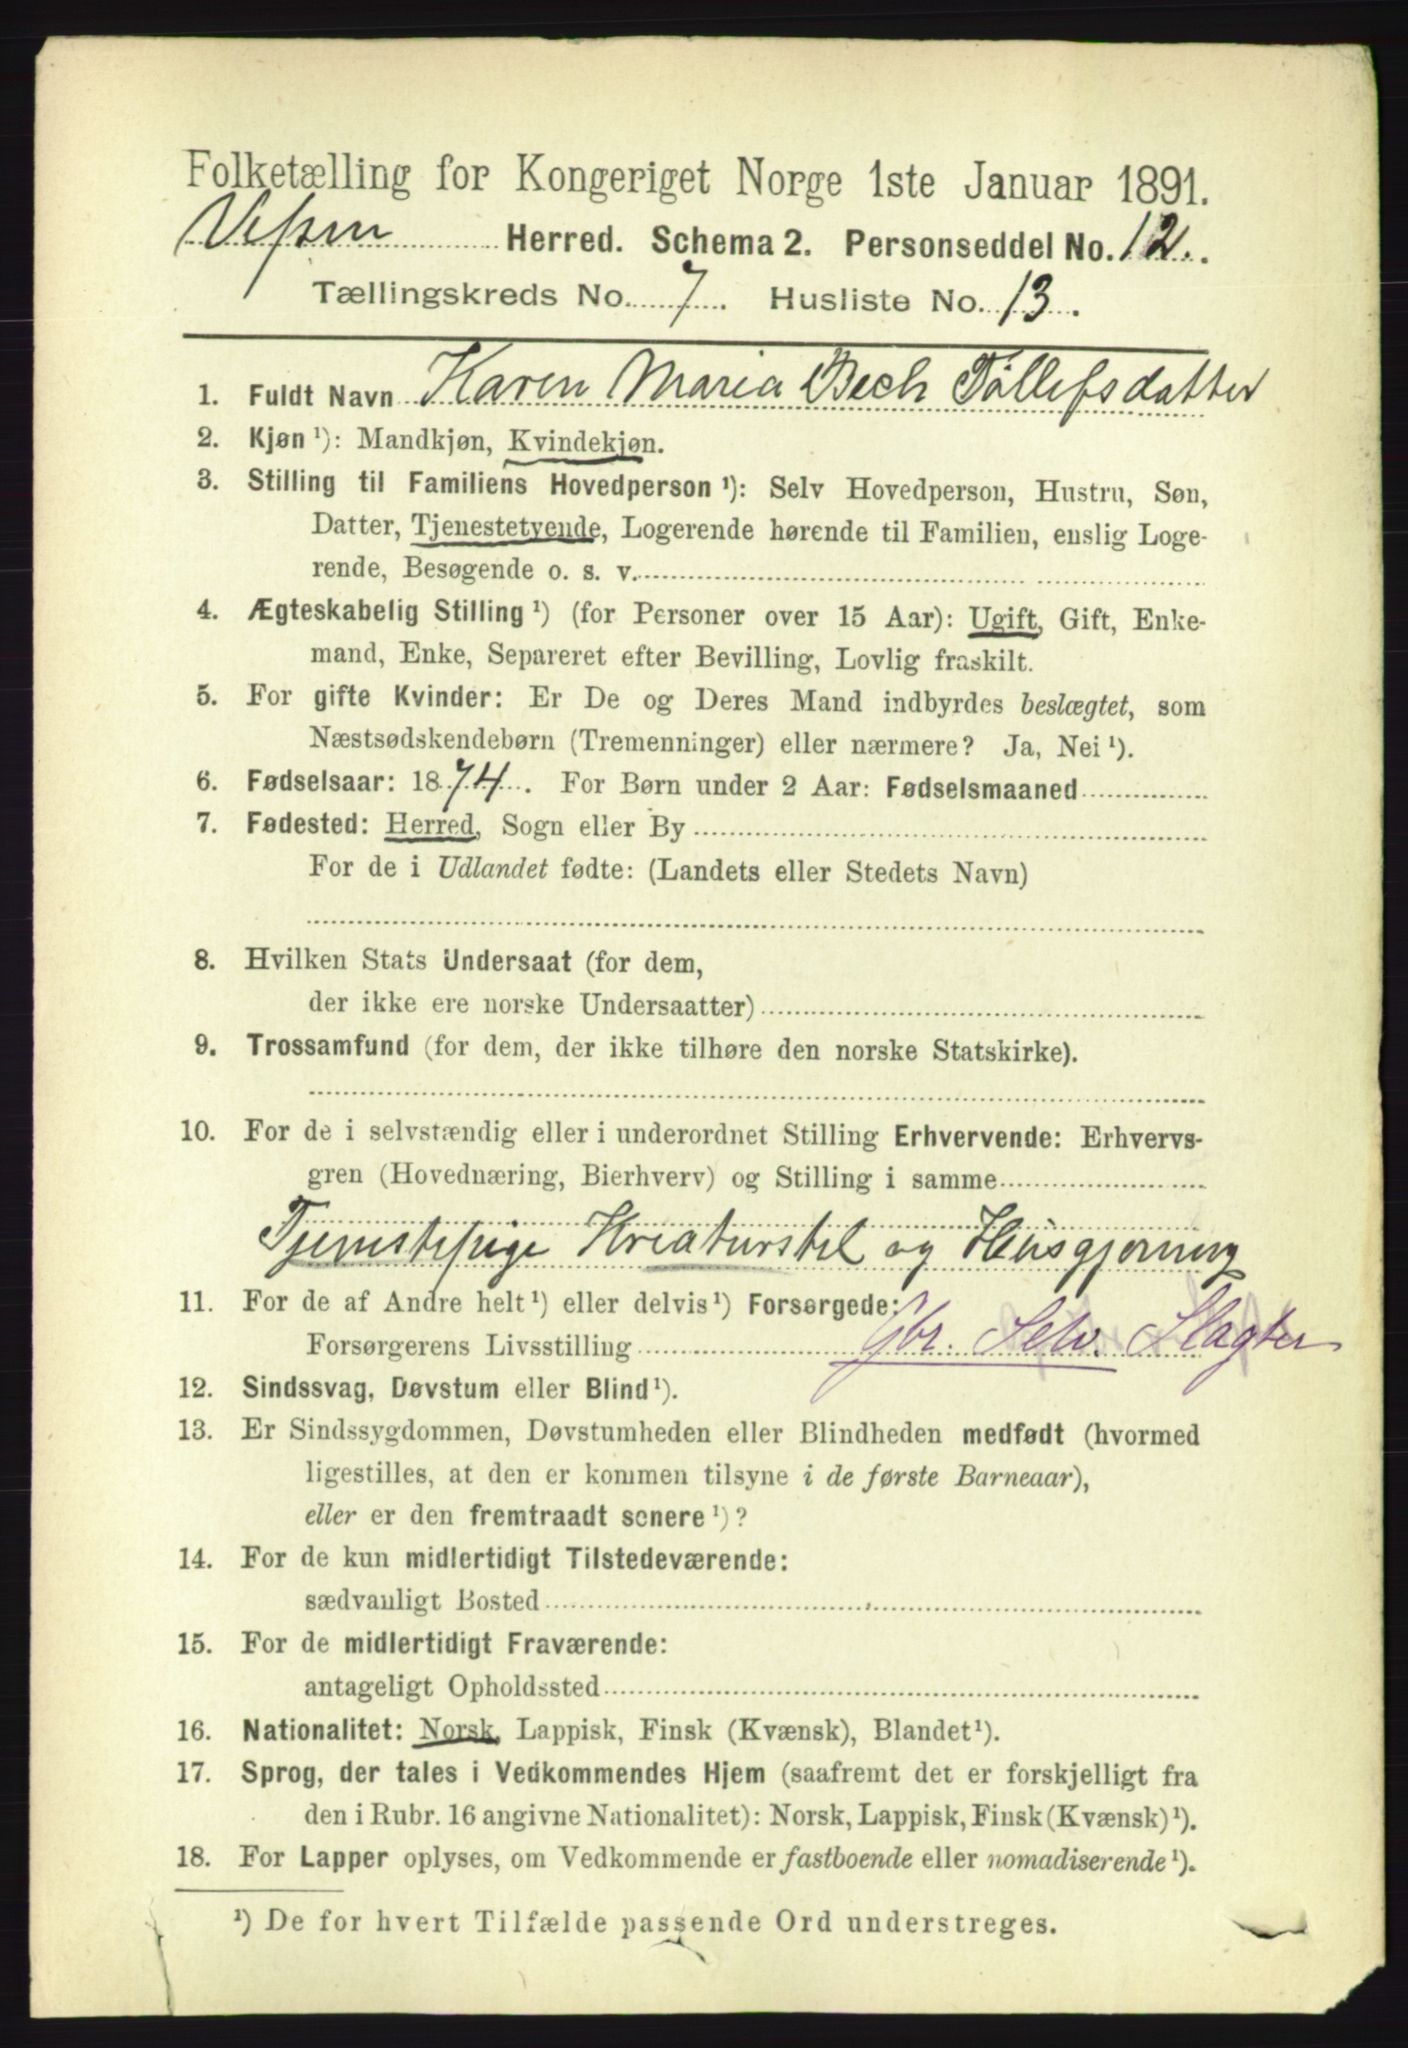 Folketælling for Kongeriget Norge 1ste Januar 1891.
Vefsen Herred. Schema 2. Personseddel No. 12.
Tællingskreds No. 7. Husliste No. 13.
1. Fuldt Navn Karen Maria Bech Tøllefsdatter
2. Kjøn ¹): Mandkjøn, Kvindekjøn.
3. Stilling til Familiens Hovedperson ¹): Selv Hovedperson, Hustru, Søn,
Datter, Tjenestetyende, Logerende hørende til Familien, enslig Loge-
rende, Besøgende o. s. v.
4. Ægteskabelig Stilling ¹) (for Personer over 15 Aar): Ugift, Gift, Enke-
mand, Enke, Separeret efter Bevilling, Lovlig fraskilt.
5. For gifte Kvinder: Er De og Deres Mand indbyrdes beslægtet, som
Næstsødskendebørn (Tremenninger) eller nærmere? Ja, Nei ¹).
6. Fødselsaar: 1874. For Børn under 2 Aar: Fødselsmaaned
7. Fødested: Herred, Sogn eller By
For de i Udlandet fødte: (Landets eller Stedets Navn)
8. Hvilken Stats Undersaat (for dem,
der ikke ere norske Undersaatter)
9. Trossamfund (for dem, der ikke tilhøre den norske Statskirke).
10. For de i selvstændig eller i underordnet Stilling Erhvervende: Erhvervs-
gren (Hovednæring, Bierhverv) og Stilling i samme
Tjenstepige Kreaturstel og Husgjerning
11. For de af Andre helt ¹) eller delvis ¹) Forsørgede:
Forsørgerens Livsstilling Gbr. Selv. Slagter
12. Sindssvag, Døvstum eller Blind ¹).
13. Er Sindssygdommen, Døvstumheden eller Blindheden medfødt (hvormed
ligestilles, at den er kommen tilsyne i de første Barneaar),
eller er den fremtraadt senere ¹)?
14. For de kun midlertidigt Tilstedeværende:
sædvanligt Bosted
15. For de midlertidigt Fraværende:
antageligt Opholdssted
16. Nationalitet: Norsk, Lappisk, Finsk (Kvænsk), Blandet ¹).
17. Sprog, der tales i Vedkommendes Hjem (saafremt det er forskjelligt fra
den i Rubr. 16 angivne Nationalitet): Norsk, Lappisk, Finsk (Kvænsk) ¹).
18. For Lapper oplyses, om Vedkommende er fastboende eller nomadiserende ¹).
¹) De for hvert Tilfælde passende Ord understreges.